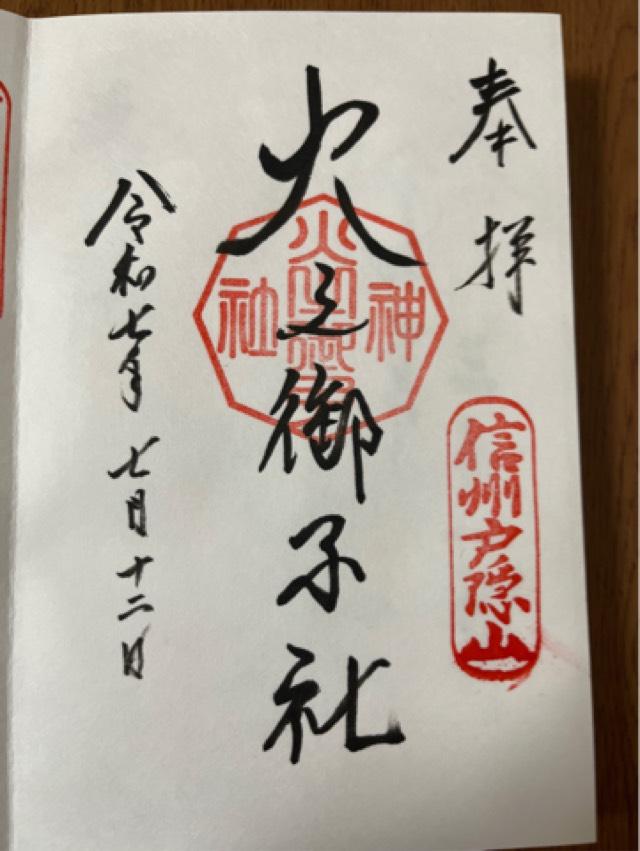 奉拝
信州戸隠山
火之御子社
神
社
令和七年七月十二日